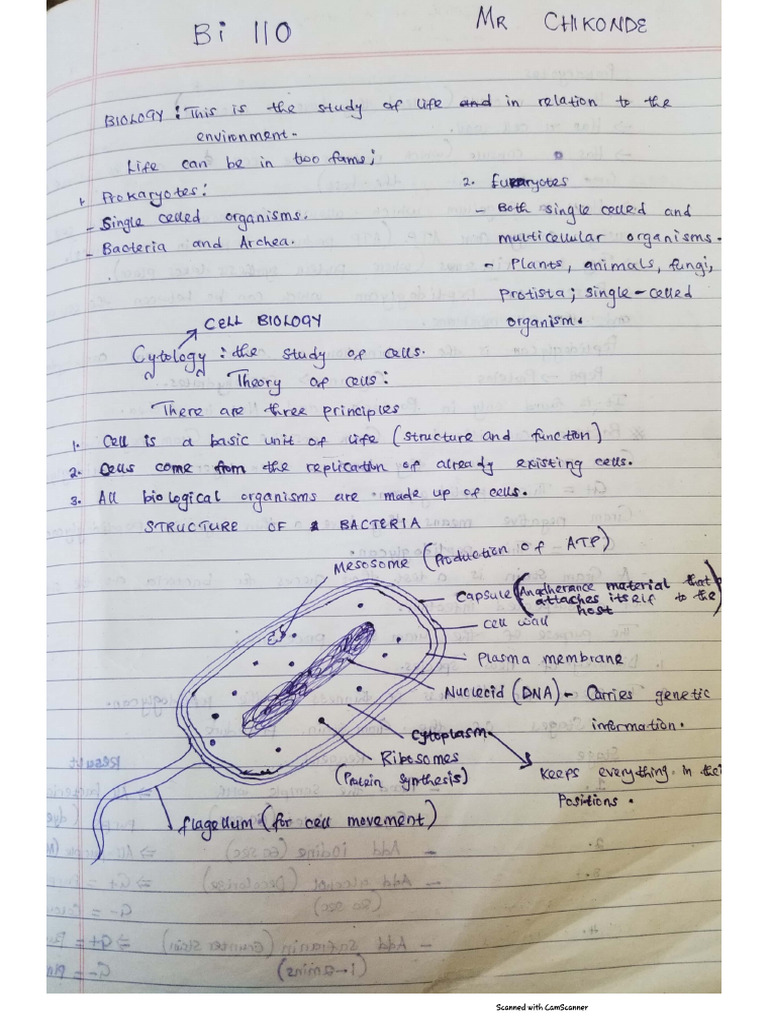 Bi 110
MR CHIKONDE
BIOLOGY: This is the study of life and in relation to the
environment.
Life can be in two foms;
1. Prokaryotes:
- Single celled organisms.
- Bacteria and Archea.
2. Eukaryotes
- Both single celled and
multicellular organisms.
- Plants, animals, fungi,
protista; single-celled
organism.
CELL BIOLOGY
Cytology: the study of cells.
Theory of cells:
There are three principles
1. Cell is a basic unit of life (structure and function)
2. Cells come from the replication of already existing cells.
3. All biological organisms are made up of cells.
STRUCTURE OF BACTERIA
Mesosome (Production of ATP)
Capsule (An adherance material that
attaches itself to the
host)
Cell wall
Plasma membrane
Nucleoid (DNA) - Carries genetic
information.
Cytoplasm
Keeps everything in their
positions.
Ribosomes
(Protein synthesis)
flagellum (for cell movement)
Scanned with CamScanner